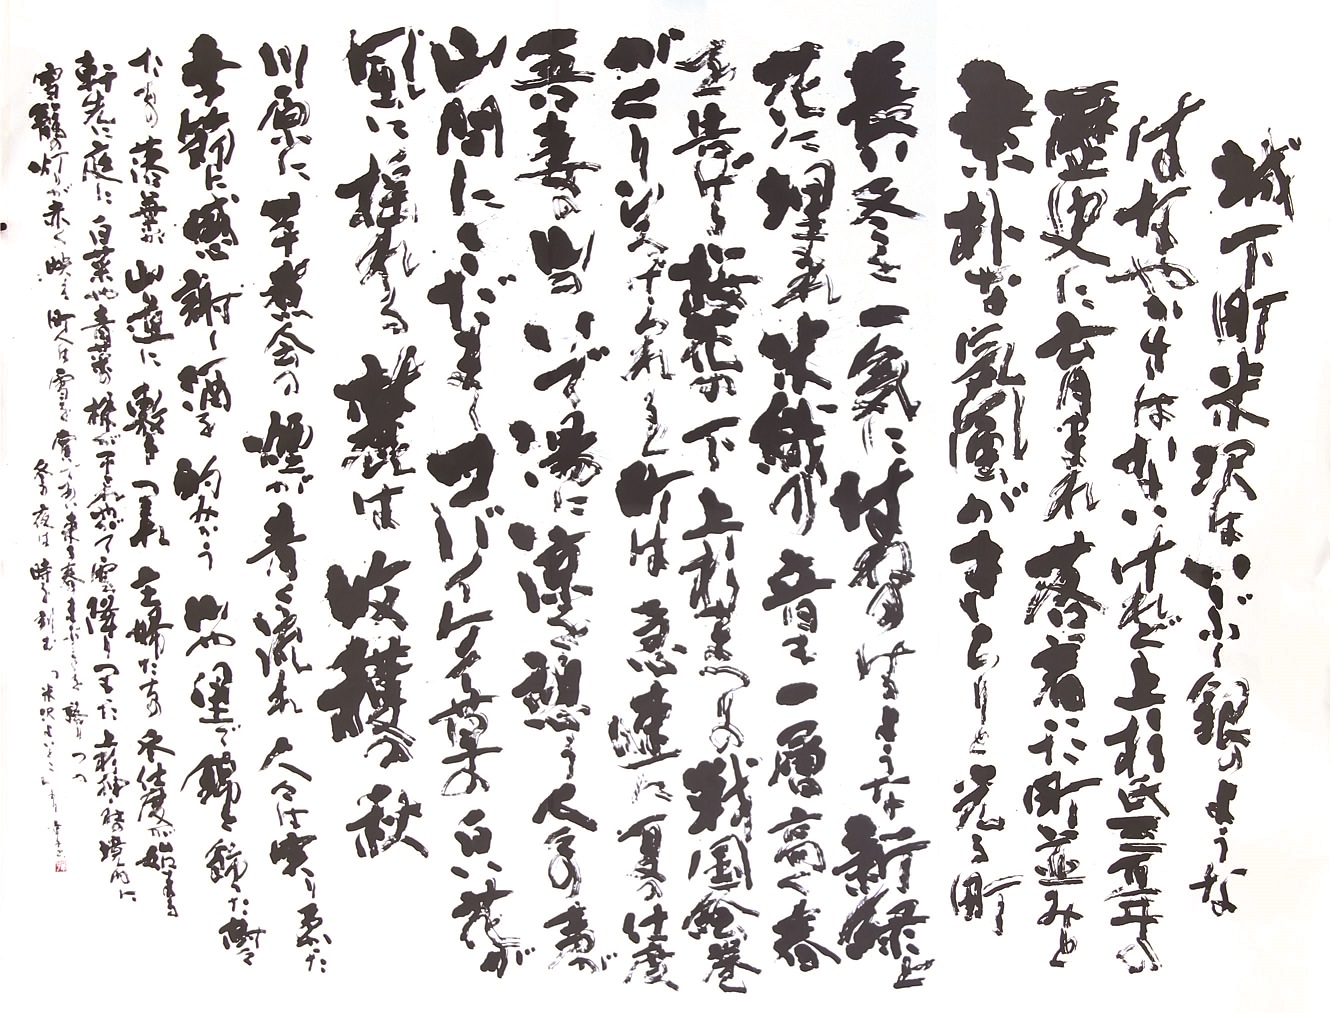 城下町米沢はいぶし銀のような
はなやかさはないけれど上杉氏三百年の
歴史に育まれ落着いた町並みと
素朴な気風がきらりと光る町
長い冬を一気にはねのけるような新緑と
花に埋まれ米織の音も一層高く春
を告げる桜花の下上杉まつりの戦国絵巻
がくり広げられると町は急速に夏の仕度
吾妻の出で湯に涼を憩う人々の声が
山間にこだまし コバイケイ草の白い花が
風に揺れる 蕎麦は収穫の秋
川原に芋煮会の煙が青く流れ 人々は実り豊かな
季節に感謝し酒を酌みかう 山や里で錦を飾った樹々
たちの落葉が山道に敷きつめられ 主婦たちの冬仕度が始まる
軒先に庭に白菜や青菜の 漬 やがて雪降りつもった上杉神社の境内に
雪灯籠の灯りが赤く映え 町人は雪を 来る春を 語りつつ
冬の夜は時を刻む 「米沢よいとこ